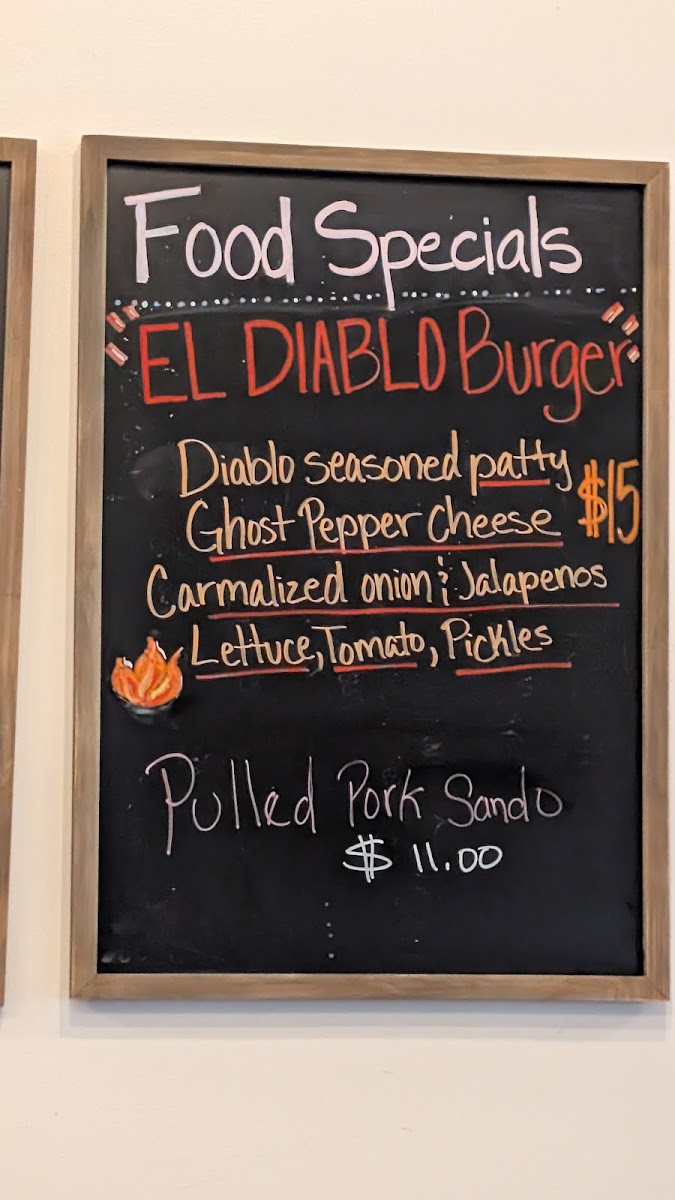 Food Specials
"EL DIABLO Burger"
Diablo seasoned patty
Ghost Pepper Cheese $15
Carmalized onion & Jalapenos
Lettuce, Tomato, Pickles
Pulled Pork Sando
$ 11.00